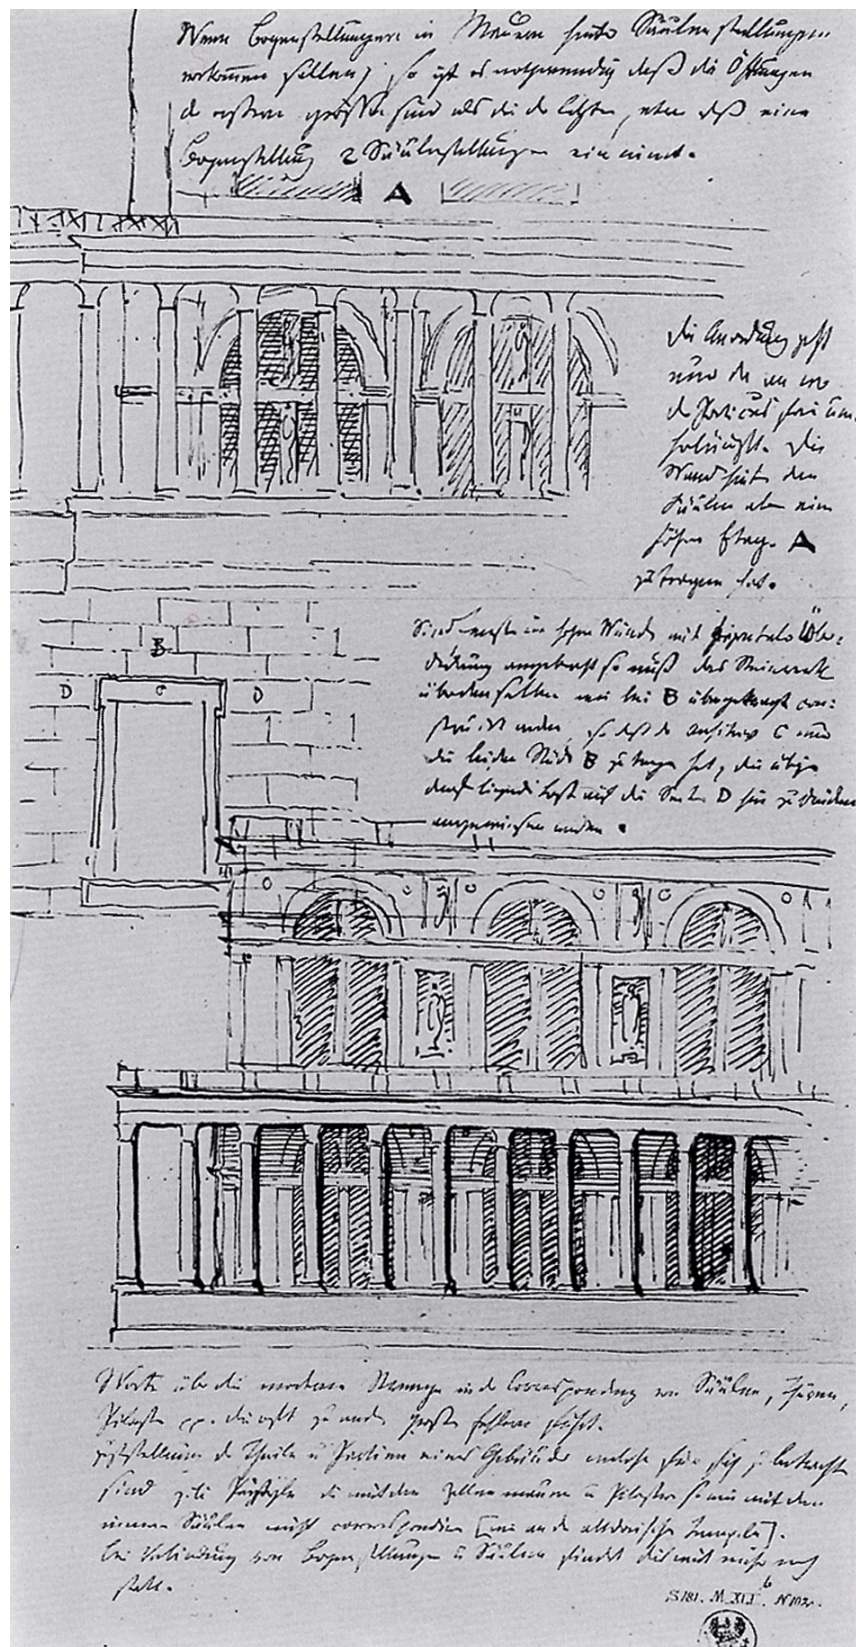 Wenn Bogenstellungen in Mauern hinter Säulenstellungen
vorkommen sollen, so ist es nothwendig daß die Öffnungen
der ersteren größer sind als die der letzten, etwa daß eine
Bogenstellung 2 Säulenstellungen einnimt.
A
die Anordnung geht
nur da an wo
der Porticus frei
die
Wand hinter den
Säulen aber eine
höhere Etage A
zu tragen hat.
B
D C D
Sind Fenster in hohen Wänden mit horizontaler Über-
deckung angebracht so muß das Steinwerk
über denselben wie bei B übergekragt con-
struirt werden, so daß der Architrav C nur
die beiden Stücke B zu tragen hat, die übrige
darauf liegende Last auf die Seiten D hin zu drücken
angewiesen werden.
Worte über die moderne Manier in der Correspondenz von Säulen, Thüren,
Pilaster pp. die oft zu großen Fehlern führt.
der Theile u Partien eines Gebäudes welche für sich zu betrachten
sind z.B. die mit den Zellenmauern u Pilastern sowie mit den
inneren Säulen nicht correspondiren [wie an den altdorischen Tempeln].
bei Verbindung von Bogenstellungen u Säulen findet dies mit mehr noch
statt.
S 181. M. XLI b N 102.